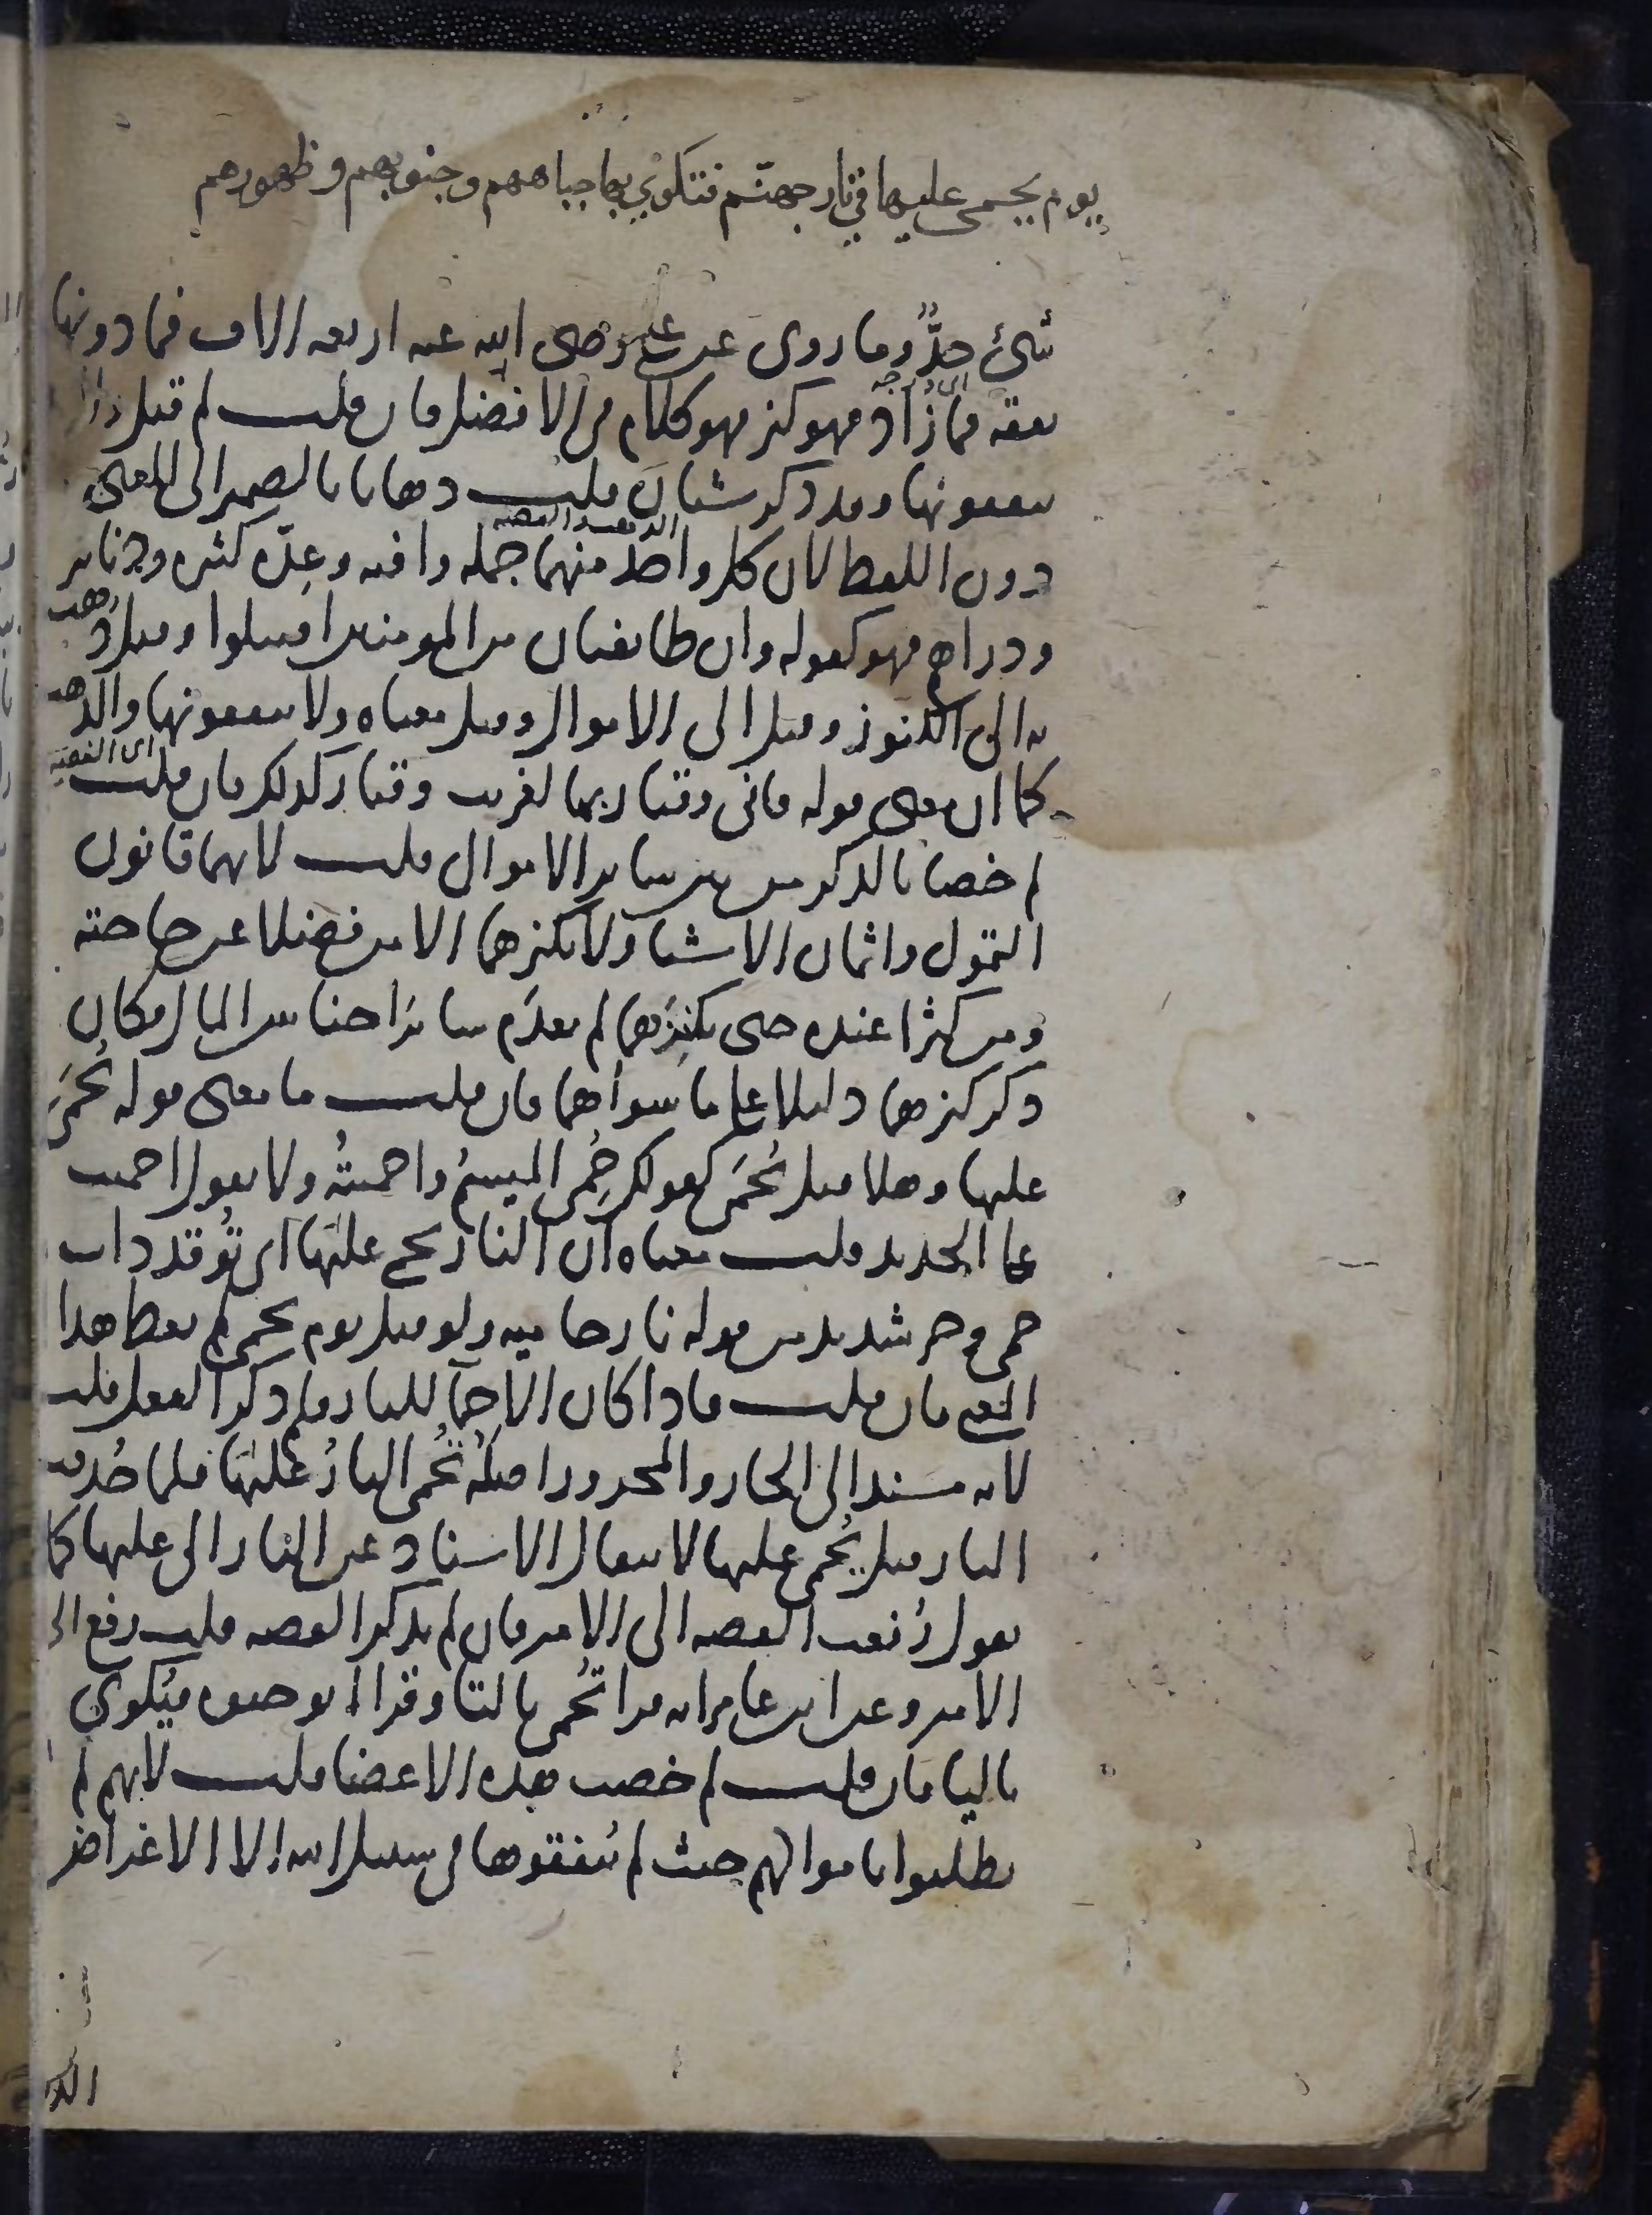 يوم يحمى عليها في نار جهنم فتكوي بها جباههم وجنوبهم وظهورهم
شئ حدّ وما روى عن على رضى الله عنه اربعه الاف فما دونها
نفقه فما زاد فهو كنز فهو كلام في الافضل فان قلت لم قيل ولا
ينفقونها وقد ذكر شيان قلت ذهابا بالضمير الى المعنى
دون اللفظ لان كل واحد منهما جمله وافيه وعدّه كثيره ودنانير
الذهب والفضه
ودراهم فهو كقوله وان طايفتان من المومنين اقتتلوا وقيل ذهب
به الى الكنوز وقيل الى الاموال وقيل معناه ولا ينفقونها والذهب
كما ان معنى قوله فانى وقيار بها لغريب وقيار كذلك فان قلت
اى الفضه
لم خصا بالذكر من بين ساير الاموال قلت لانهما قانون
التمول واثمان الاشيا ولا يكنزهما الا من فضلا عن حاجته
ومن كثرا عنده حتى يكنزهما لم يعدم ساير اجناس المال فكان
ذكر كنزهما دليلا على ما سواهما فان قلت ما معنى قوله يُحمَى
عليها وهلا قيل تُحمَى كقولك حمِى الميسم واحميته ولا يقول احميت
على الحديد قلت معناه ان النار تحمى عليها اى توقد ذات
حمى وحر شديد من قوله نار حاميه ولو قيل يوم تحمى لم يعط هذا
المعنى فان قلت فاذا كان الاحمآ للنار فلم ذكر الفعل قلت
لانه مسند الى الجار والمجرور اصله تُحمى النارُ عليها فلما حُذفت
النار قيل يُحمى عليها لانتقال الاسناد عن النار الى عليها كما
يقول رُفعت القصه الى الامير فان لم يذكر القصه قلت رفع الى
الامير وعن ابن عامر انه قرا تُحمى بالتا وقرا ابو حيوه فيُكوي
باليا فان قلت لم خصت هذه الاعضا قلت لانهم لم
يطلبوا باموالهم حيث لم ينفقوها فى سبيل الله الا الاغراض